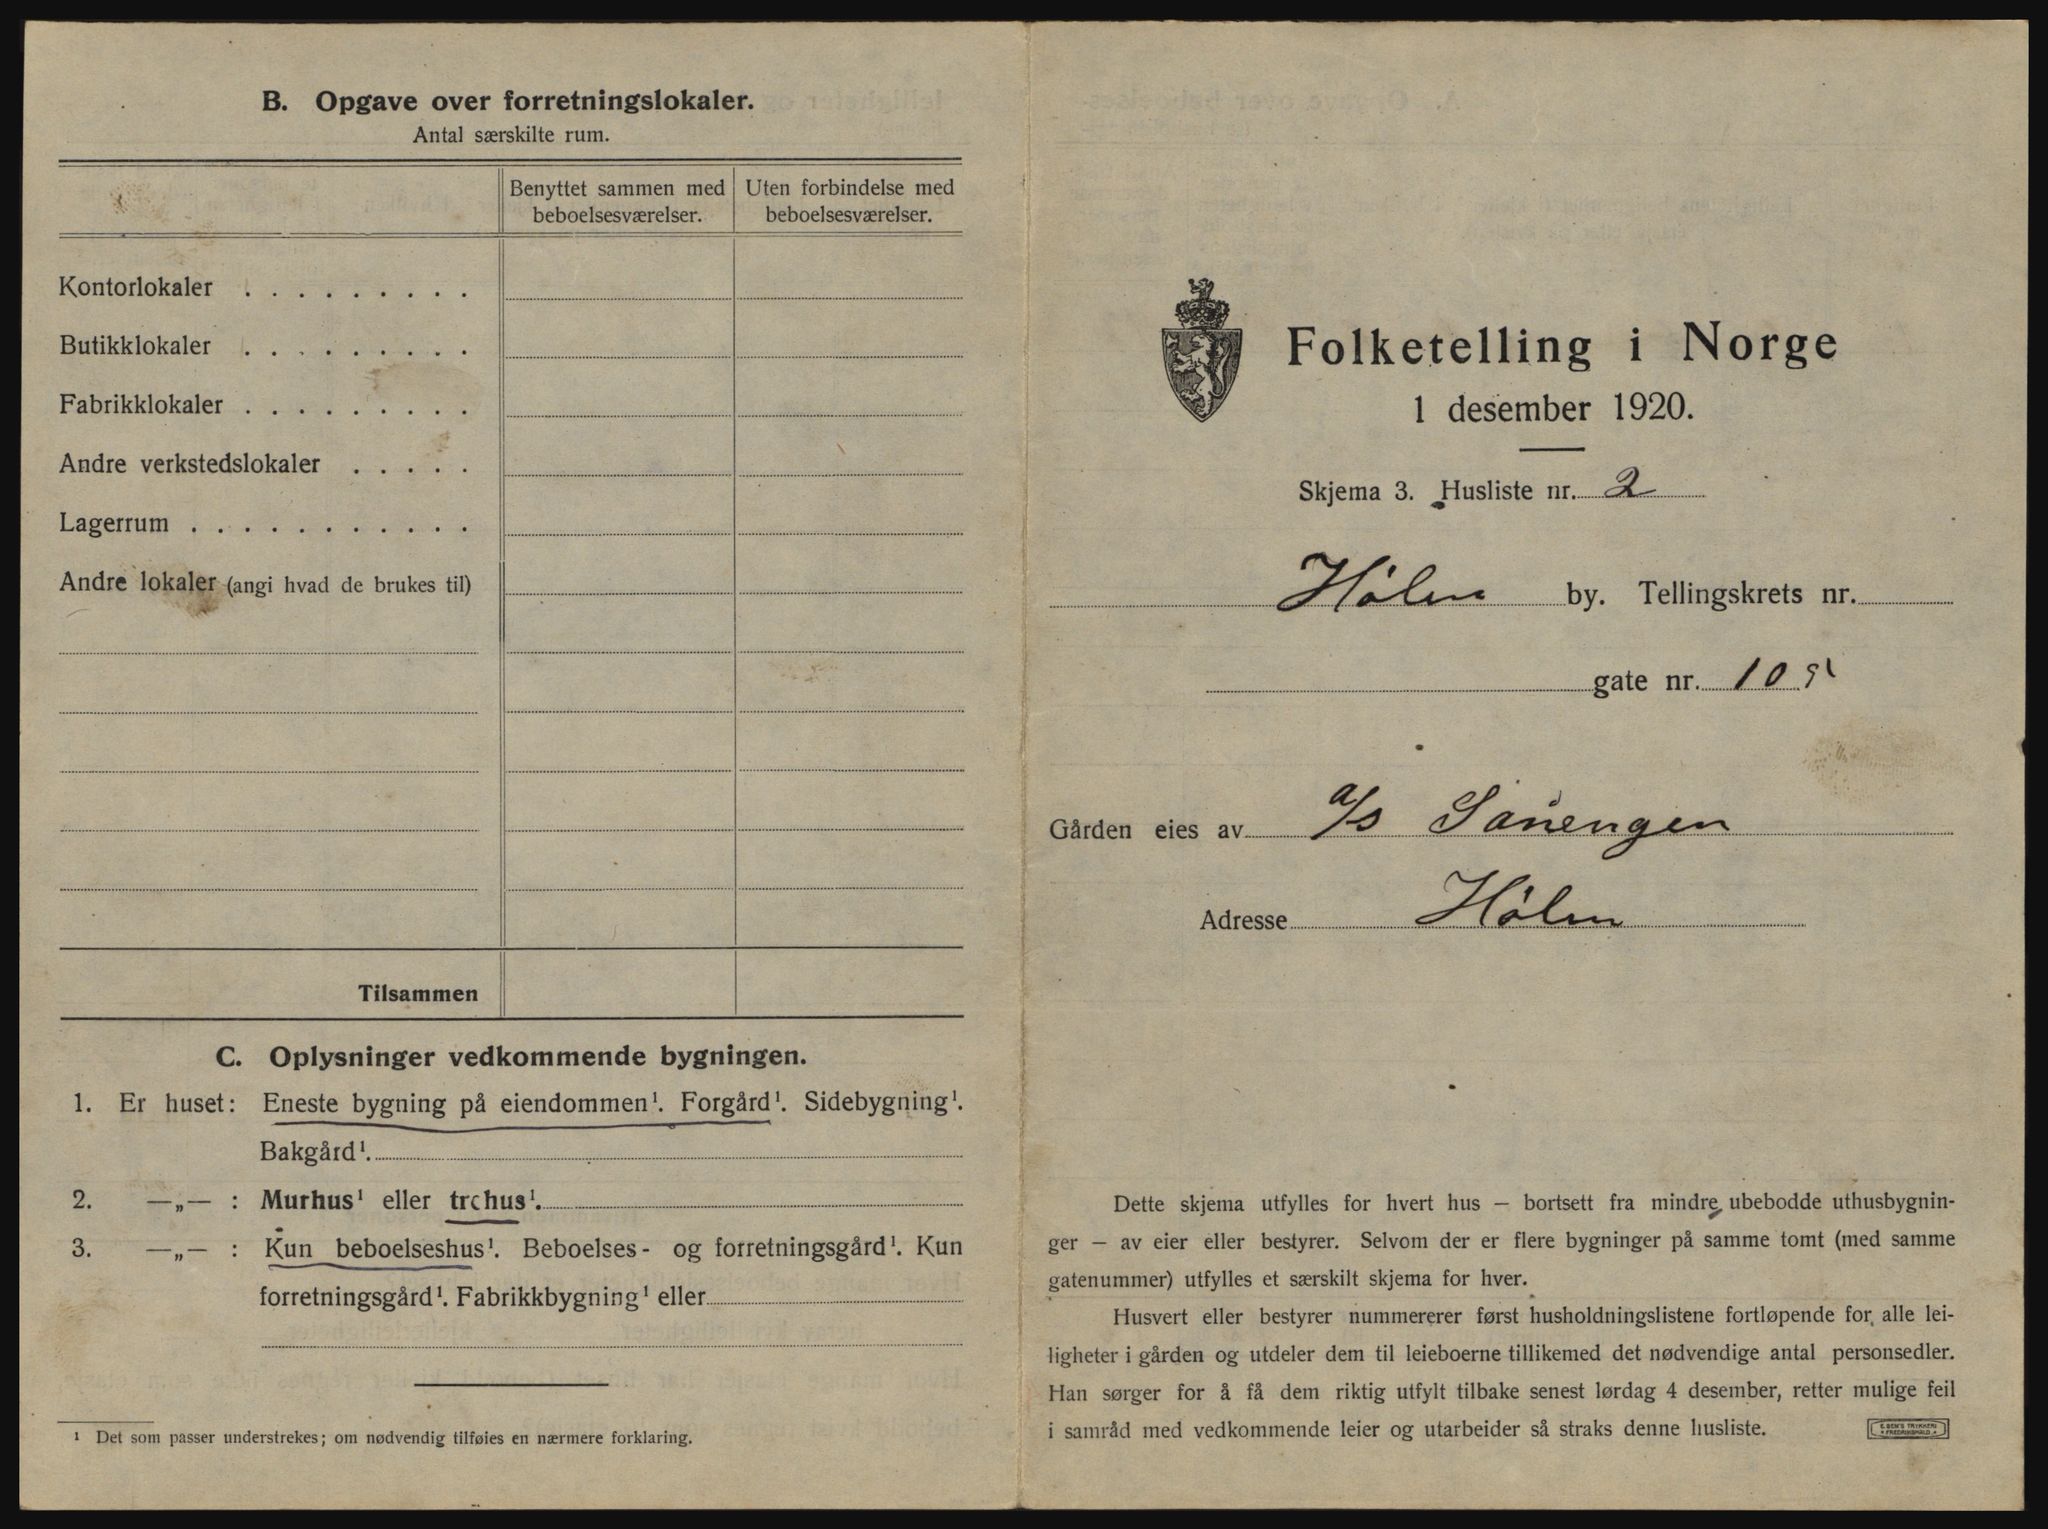 B. Opgave over forretningslokaler.
Antal særskilte rum.
Benyttet sammen med beboelsesværelser.
Uten forbindelse med beboelsesværelser.
Kontorlokaler . . . . . . . . .
Butikklokaler . . . . . . . . .
Fabrikklokaler . . . . . . . . .
Andre verkstedslokaler . . . . .
Lagerrum . . . . . . . . . . .
Andre lokaler (angi hvad de brukes til)
Tilsammen
C. Oplysninger vedkommende bygningen.
1. Er huset: Eneste bygning på eiendommen¹. Forgård¹. Sidebygning¹.
Bakgård¹.
2. —„— : Murhus¹ eller trehus¹.
3. —„— : Kun beboelseshus¹. Beboelses- og forretningsgård¹. Kun
forretningsgård¹. Fabrikkbygning¹ eller
¹ Det som passer understrekes; om nødvendig tilføies en nærmere forklaring.
Folketelling i Norge
1 desember 1920.
Skjema 3. Husliste nr. 2
Hølen by. Tellingskrets nr.
gate nr. 105
Gården eies av a/s Sånengen
Adresse Hølen
Dette skjema utfylles for hvert hus – bortsett fra mindre ubebodde uthusbygnin-
ger – av eier eller bestyrer. Selvom der er flere bygninger på samme tomt (med samme
gatenummer) utfylles et særskilt skjema for hver.
Husvert eller bestyrer nummererer først husholdningslistene fortløpende for alle lei-
ligheter i gården og utdeler dem til leieboerne tillikemed det nødvendige antal personsedler.
Han sørger for å få dem riktig utfylt tilbake senest lørdag 4 desember, retter mulige feil
i samråd med vedkommende leier og utarbeider så straks denne husliste.
E. SEM'S TRYKKERI
FREDRIKSHALD